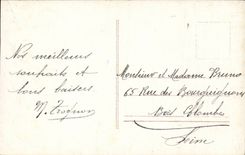 Nos meilleurs
souhaits et
bons baisers
Monsieur et Madame Bruno
65 Rue des Bourguignons
Bois Colombes
Seine